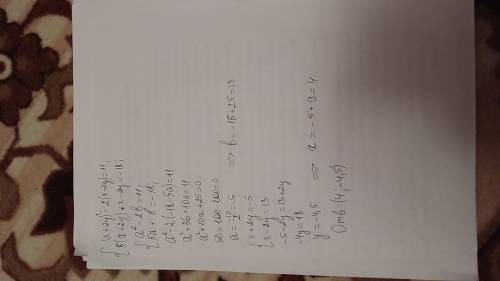 { (x+2y)² - 2(x-2y) = 11;
{ 5(x+2y) + x-2y = -18;
{ a² - 2b = 11;
{ 5a + b = -18;
a² - 2(-18-5a) = 11
a² + 36 + 10a = 11
a² + 10a + 25 = 0
D = 100 - 100 = 0
a = -10/2 = -5 => b = -18 + 25 = 13
{ x + 2y = -5
{ x - 2y = 13
-5 - 2y = 13 + 2y
-4y = 18
y = -4,5 => x = -5 + 9 = 4
Отв (4; -4,5)